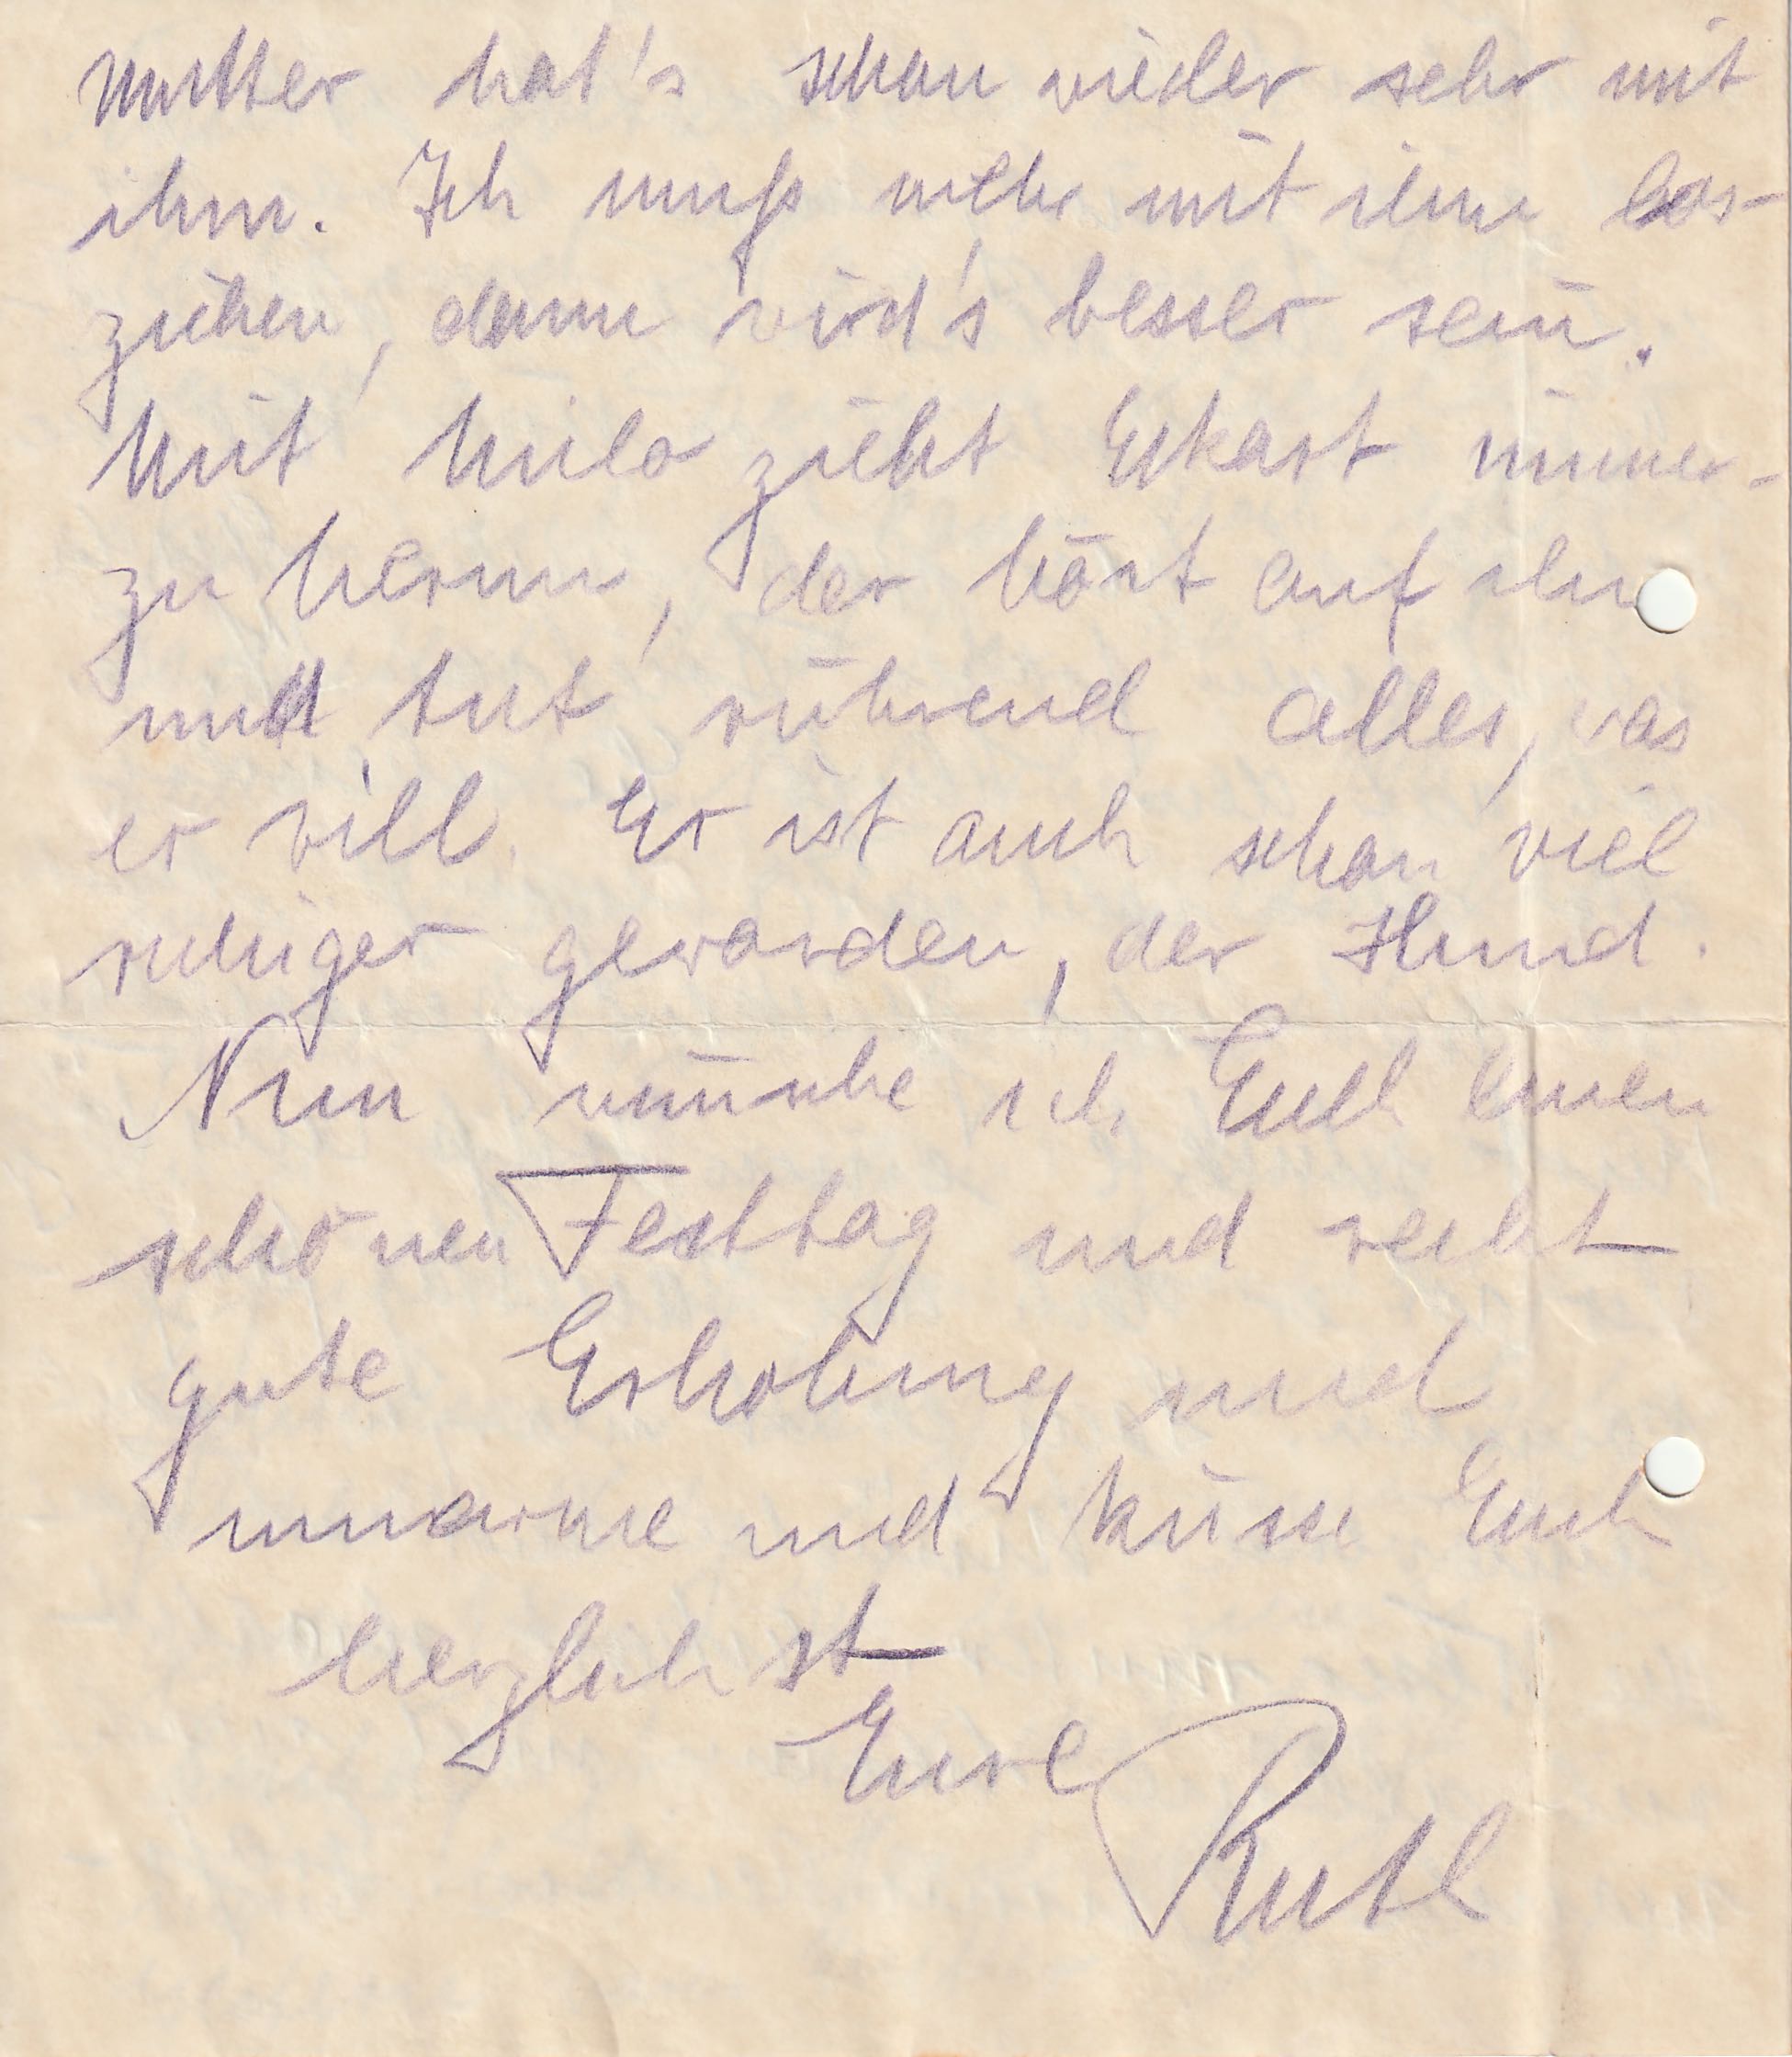 Mutter hat's schon wieder sehr mit
ihm. Ich muß mehr mit ihm los-
ziehen, dann wird's besser sein.
Mit Milo zieht Eckart immer-
zu herum, der hört auf ihn
und tut rührend alles, was
er will. Er ist auch schon viel
ruhiger geworden, der Hund.
Nun wünsche ich Euch einen
schönen Festtag und recht
gute Erholung und
umarme und küsse Euch
herzlichst
Eure Ruth